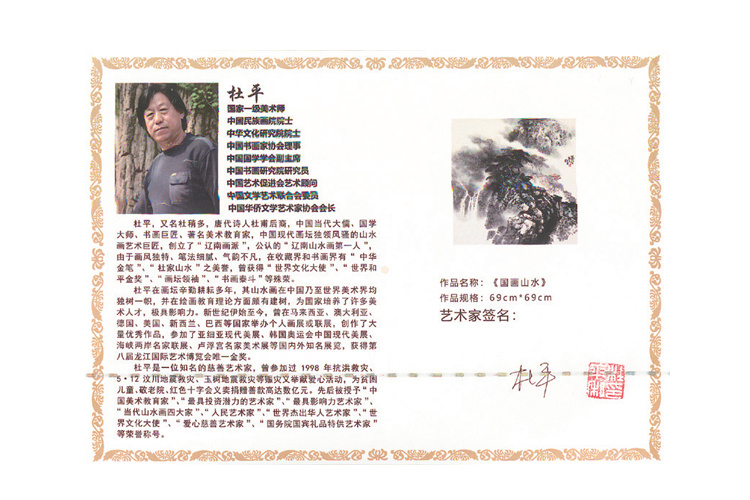 杜平
国家一级美术师
中国民族画院院士
中华文化研究院院士
中国书画家协会理事
中国国学学会副主席
中国书画研究院研究员
中国艺术促进会艺术顾问
中国文学艺术联合会委员
中国华侨文学艺术家协会会长
杜平，又名杜稍多，唐代诗人杜甫后裔，中国当代大儒、国学
大师、书画巨匠、著名美术教育家，中国现代画坛独领风骚的山水
画艺术巨匠，创立了“辽南画派”，公认的“辽南山水画第一人”，
由于画风独特、笔法细腻、气韵不凡，在收藏界和书画界有“中华
金笔”、“杜家山水”之美誉，曾获得“世界文化大使”、“世界和
平金奖”、“画坛领袖”、“书画泰斗”等殊荣。
杜平在画坛辛勤耕耘多年，其山水画在中国乃至世界美术界均
独树一帜，并在绘画教育理论方面颇有建树，为国家培养了许多美
术人才，极具影响力。新世纪伊始至今，曾在马来西亚、澳大利亚、
德国、美国、新西兰、巴西等国家举办个人画展或联展，创作了大
量优秀作品，参加了亚细亚现代美展、韩国奥运会中国现代美展、
海峡两岸名家联展、卢浮宫名家美术展等国内外知名展览，获得第
八届龙江国际艺术博览会唯一金奖。
杜平是一位知名的慈善艺术家，曾参加过 1998 年抗洪救灾、
5·12 汶川地震救灾、玉树地震救灾等赈灾义举献爱心活动，为贫困
儿童、敬老院、红色十字会义卖捐赠善款高达数亿元。先后被授予“中
国美术教育家”、“最具投资潜力的艺术家”、“最具影响力艺术家”、
“当代山水画四大家”、“人民艺术家”、“世界杰出华人艺术家”、“世
界文化大使”、“爱心慈善艺术家”、“国务院国宾礼品特供艺术家”
等荣誉称号。
作品名称：《国画山水》
作品规格：69cm*69cm
艺术家签名：
杜平